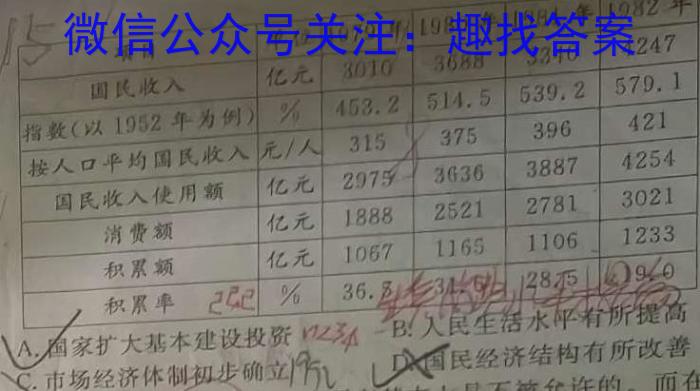 微信公众号关注：趣找答案
15 1982年
国民收入 亿元 3010 3688 4247
指数(以1952年为例) % 453.2 514.5 539.2 579.1
按人口平均国民收入 元/人 315 375 396 421
国民收入使用额 亿元 2975 3636 3887 4254
消费额 亿元 1888 2521 2781 3021
积累额 亿元 1067 1165 1106 1233
积累率 % 36.
A.国家扩大基本建设投资 B.人民生活水平有所提高
C.市场经济体制初步确立 1992 D.国民经济结构有所改善